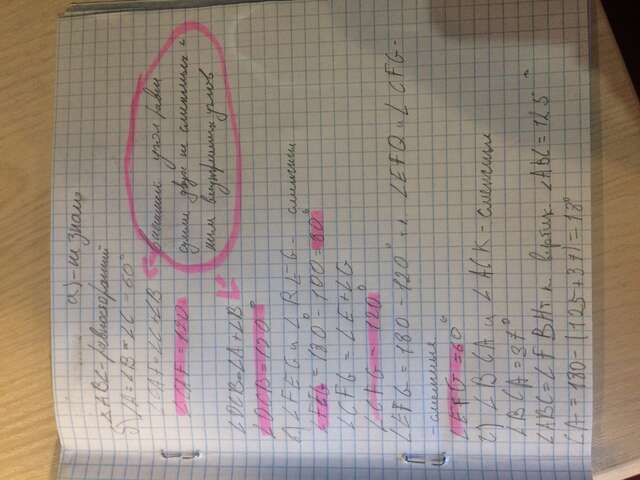 а) - не знаю
△ABC - равносторонний
б) ∠A = ∠B = ∠C = 60°
∠CAF = ∠C + ∠B
∠CAF = 120
внешний угол равен
сумме двух не смежных с
ним внутренних углов
∠DCB = ∠A + ∠B
∠DCB = 120°
в) ∠FEG и ∠REG - смежные
∠FEG = 180° - 100 = 80°
∠CFG = ∠E + ∠G
∠CFG = 120°
∠EFG = 180 - 120° т.к ∠EFG и ∠CFG -
- смежные
∠EFG = 60°
г) ∠BCA и ∠ACK - смежные
∠BCA = 37°
∠ABC = ∠FBH т к вертик ∠ABC = 125°
∠A = 180 - (125 + 37) = 18°